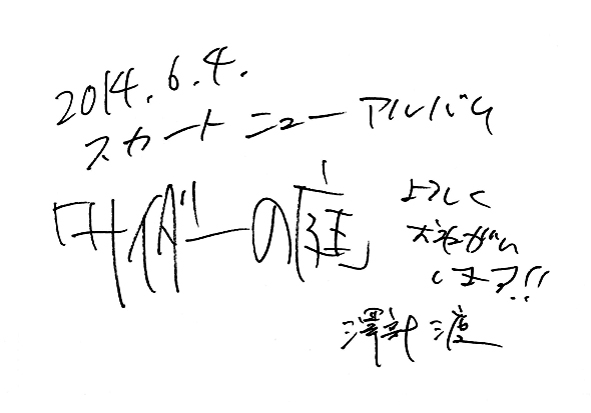 2014.6.4.
スカート ニューアルバム
サイダーの庭
よろしく
おねがい
します!!
澤部渡